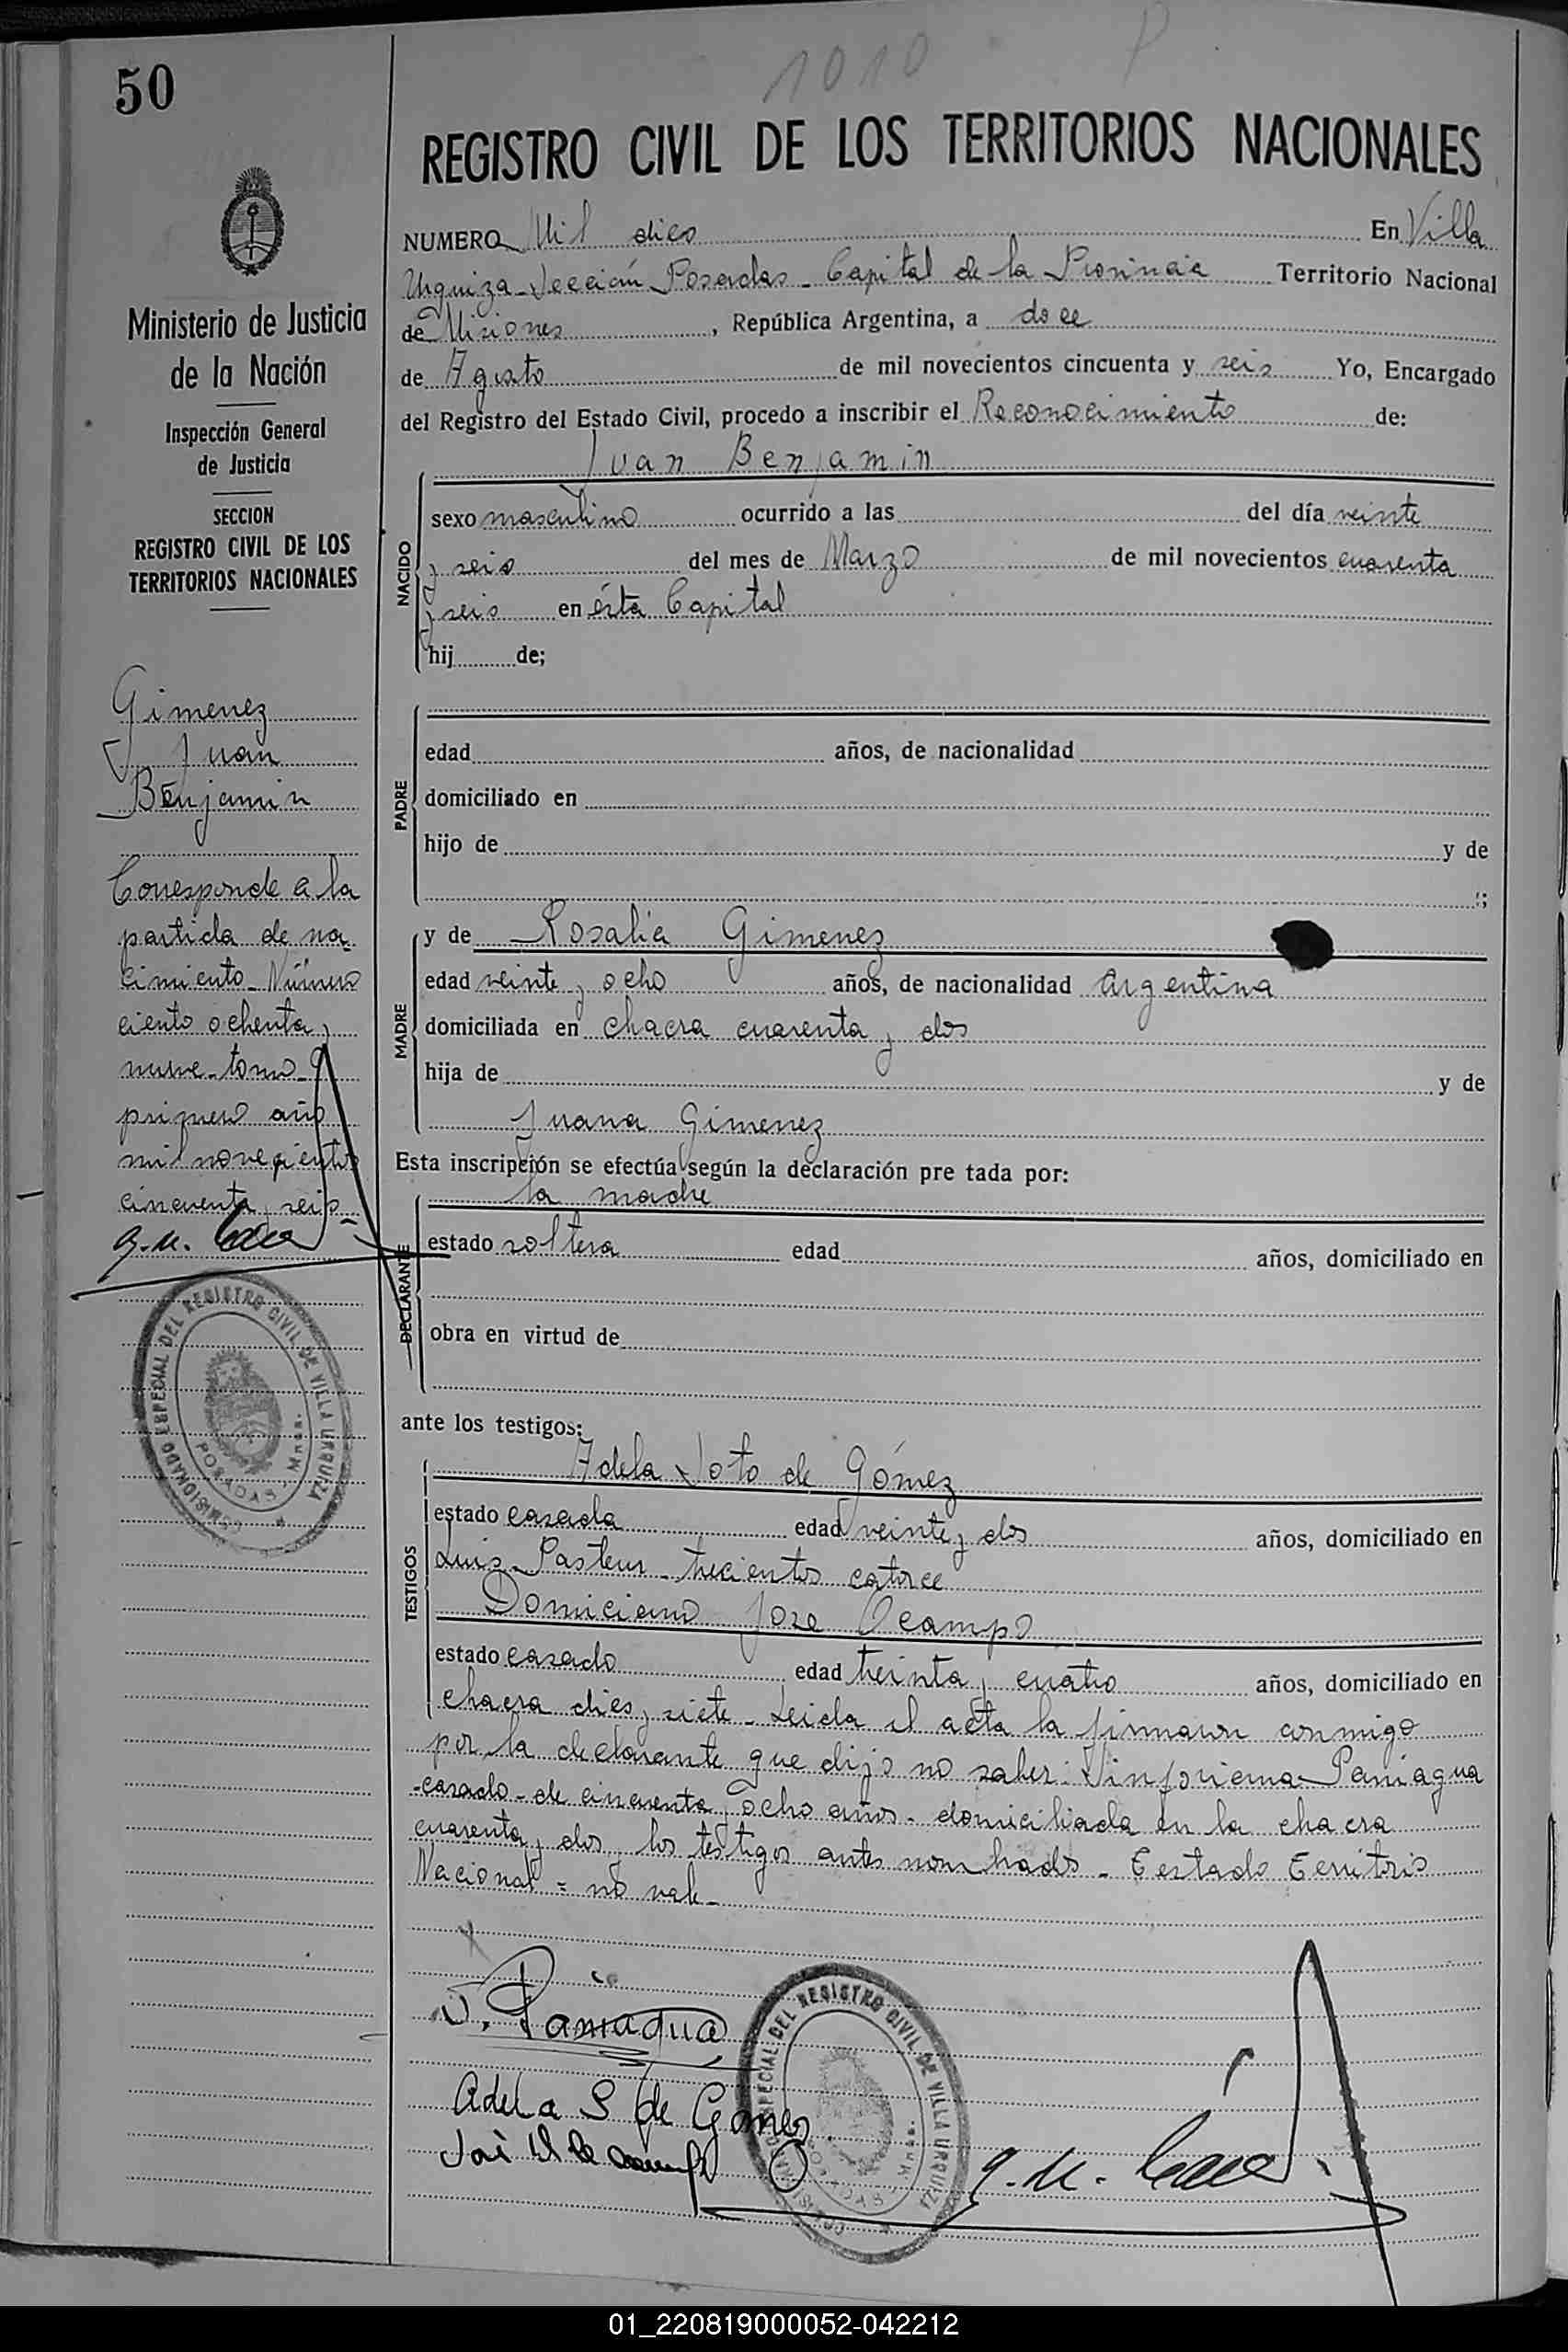 1010 P
50
REGISTRO CIVIL DE LOS TERRITORIOS NACIONALES
NUMERO Mil dies En Villa
Urquiza - Sección Posadas - Capital de la Provincia Territorio Nacional
de Misiones , República Argentina, a doce
de Agosto de mil novecientos cincuenta y seis Yo, Encargado
del Registro del Estado Civil, procedo a inscribir el Reconocimiento de:
Juan Benjamin
NACIDO
sexo masculino ocurrido a las del día veinte
y seis del mes de Marzo de mil novecientos cuarenta
y seis en ésta Capital
hij de;
PADRE
edad años, de nacionalidad
domiciliado en
hijo de y de
;
MADRE
y de Rosalia Gimenez
edad veinte y ocho años, de nacionalidad Argentina
domiciliada en chacra cuarenta y dos
hija de y de
Juana Gimenez
Esta inscripción se efectúa según la declaración pre tada por:
la madre
DECLARANTE
estado soltera edad años, domiciliado en
obra en virtud de
ante los testigos:
TESTIGOS
Adela Soto de Gómez
estado casada edad veinte y dos años, domiciliado en
Luis Pasteur - trecientos catorce
Domiciano Jose Ocampo
estado casado edad treinta y cuatro años, domiciliado en
chacra dies y siete - Leida el acta la firmaron conmigo
por la declarante que dijo no saber: Sinforiana Paniagua
-casado- de cincuenta y ocho años - domiciliada en la chacra
cuarenta y dos y los testigos antes nombrados - Testado Territorio
Nacional = no vale -
S. Paniagua
Adela S de Gómez
COMISIONADO ESPECIAL DEL REGISTRO CIVIL DE VILLA URQUIZA
POSADAS, Mnes.
Ministerio de Justicia
de la Nación
Inspección General
de Justicia
SECCION
REGISTRO CIVIL DE LOS
TERRITORIOS NACIONALES
Gimenez
Juan
Benjamin
Corresponde a la
partida de na
cimiento - Número
ciento ochenta y
nueve - tomo
primero año
mil novecientos
cincuenta y seis -
COMISIONADO ESPECIAL DEL REGISTRO CIVIL DE VILLA URQUIZA
POSADAS, Mnes.
01_220819000052-042212